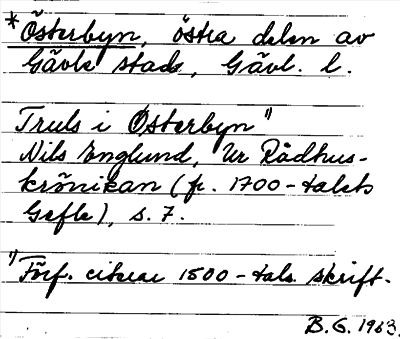 *Österbyn, östra delen av
Gävle stad, Gävl. l.
Truls i Österbyn 1)
Nils Englund, Ur Rådhus-
krönikan (fr. 1700-talets
Gefle), s. 7.
1) Förf. citerar 1500-tals skrift.
B. G. 1963.